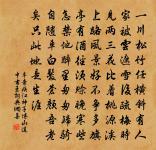 一川松竹任橫斜有人
家被雲遮雪後疏梅時
見兩三花比著桃源溪
上路風景好不爭多旗
亭有酒徑須賒晚寒些
怎禁他醉裏匆匆歸騎
自隨車白髮蒼顏吾老
矣只此地是生涯
辛棄疾江神子博山道
中書王氏壁